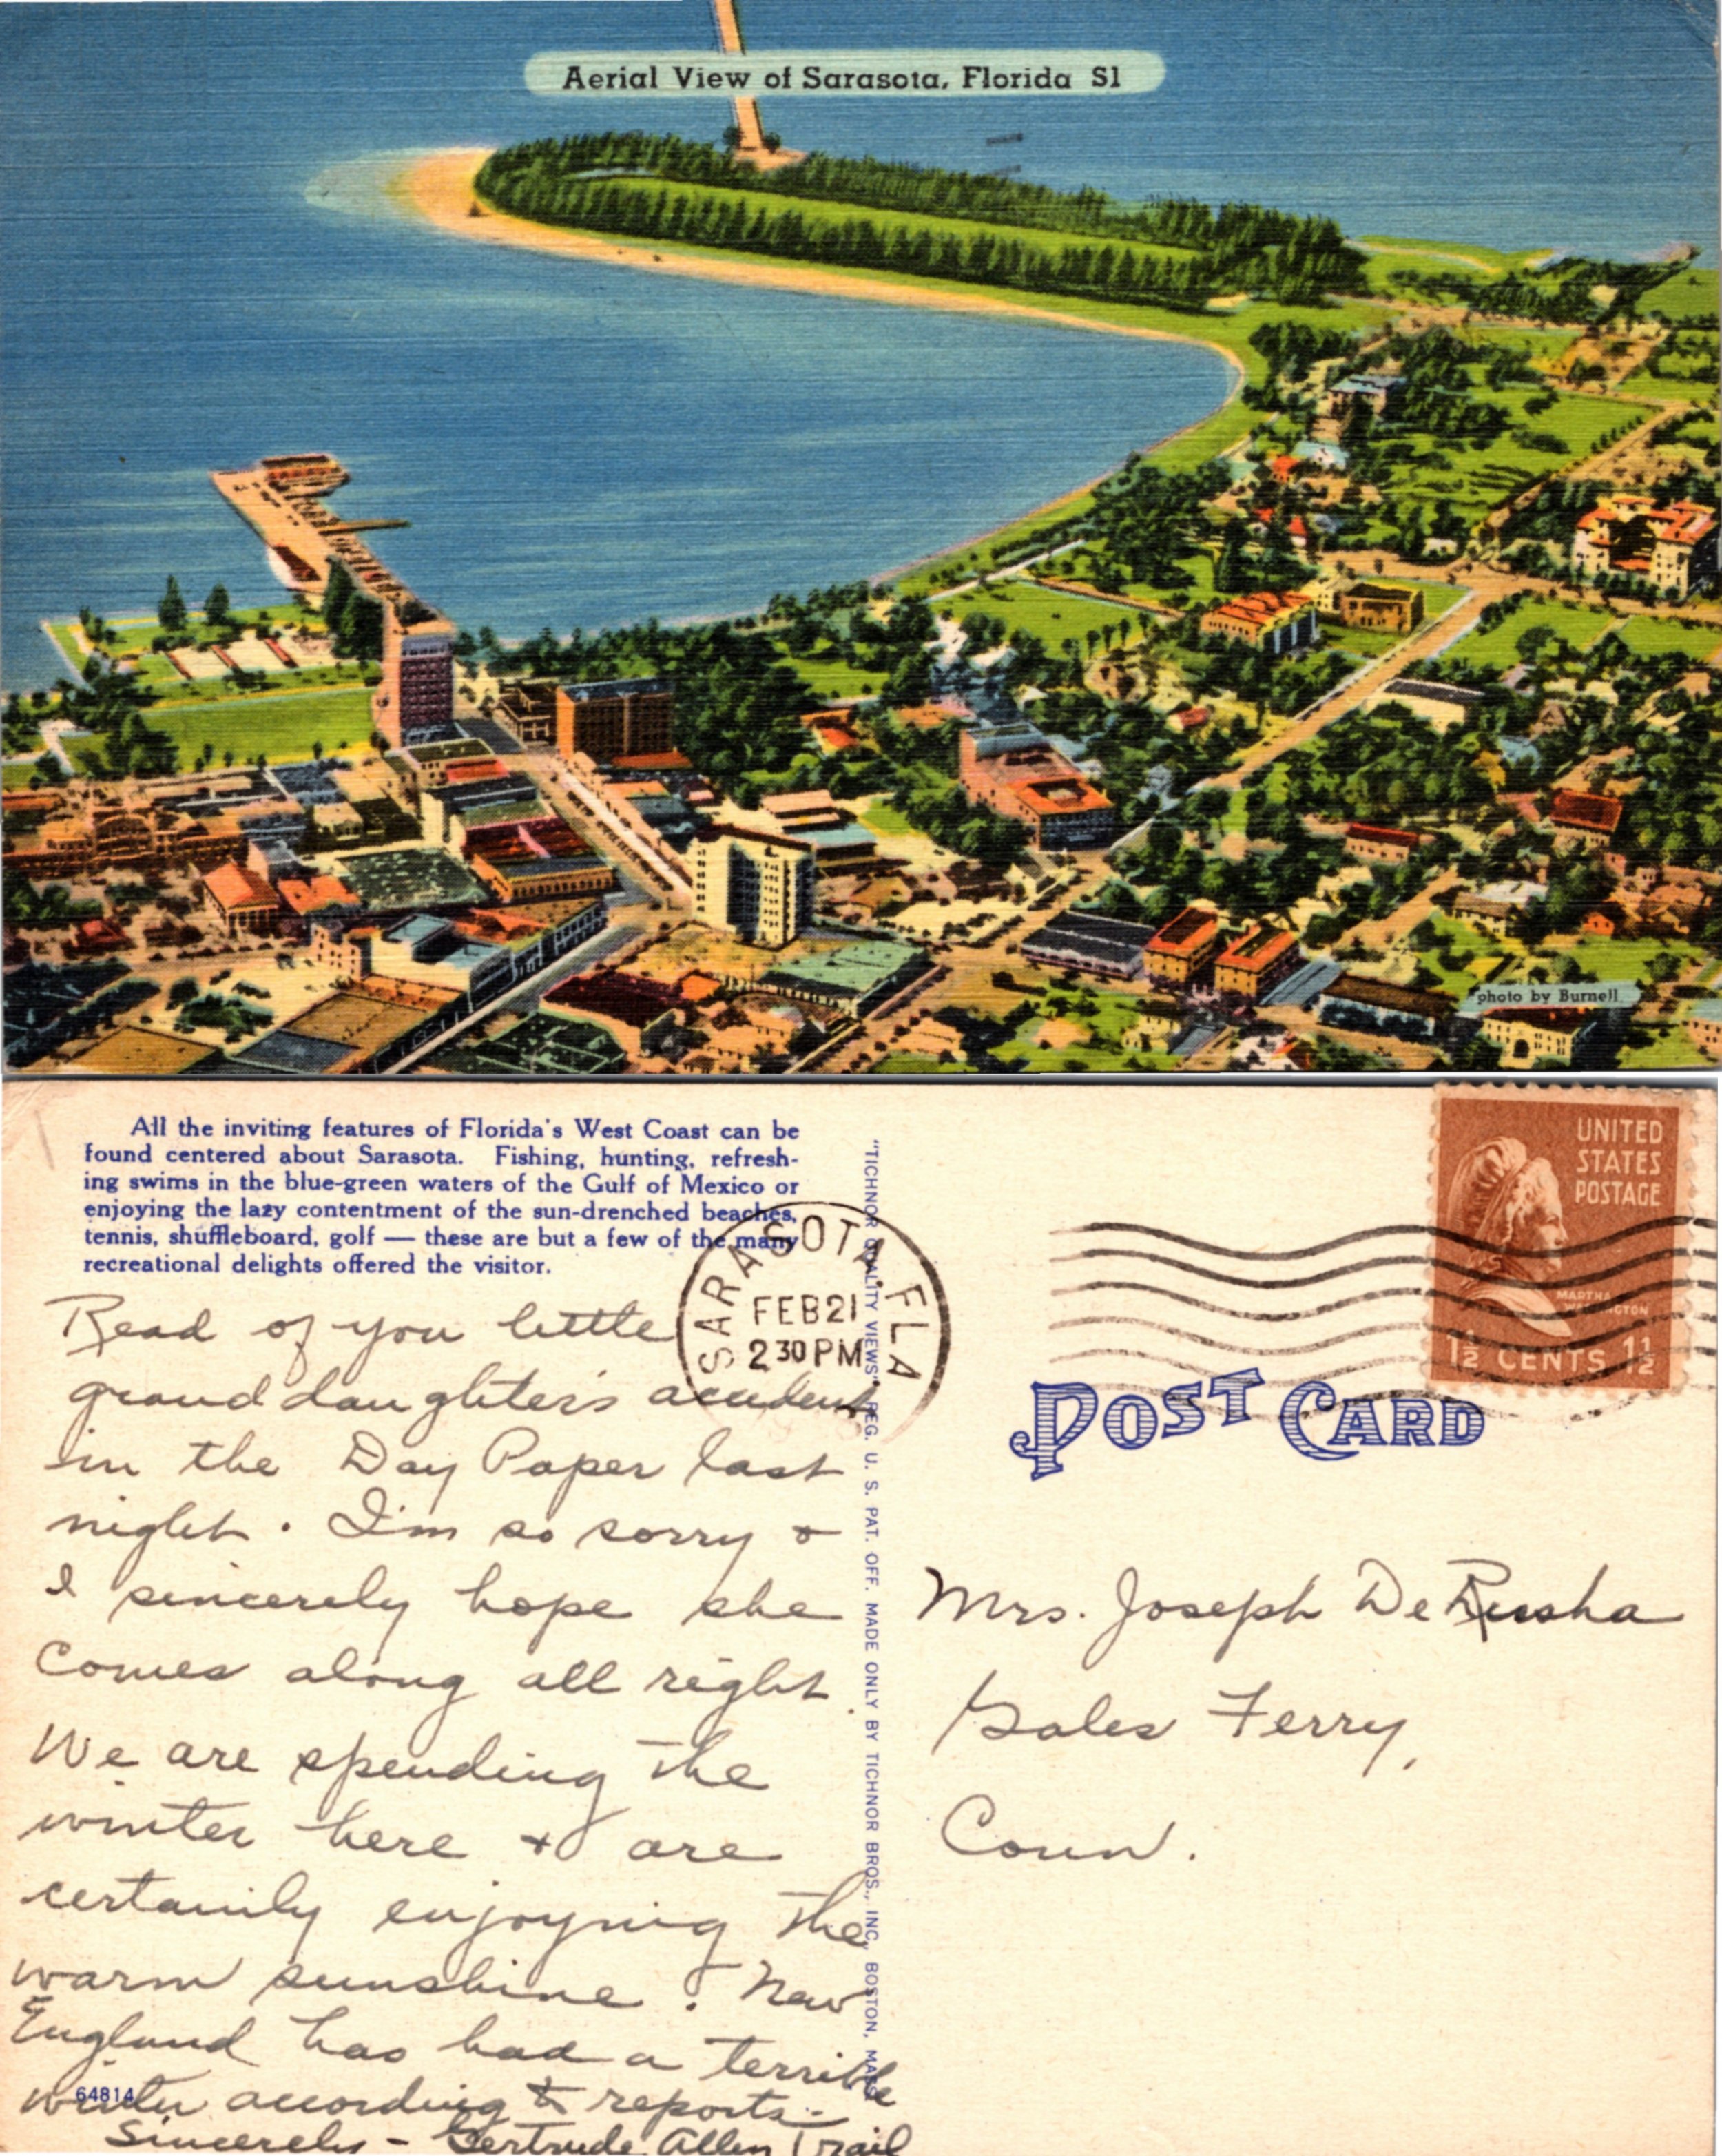 Aerial View of Sarasota, Florida S1
photo by Burnell
All the inviting features of Florida's West Coast can be
found centered about Sarasota. Fishing, hunting, refresh-
ing swims in the blue-green waters of the Gulf of Mexico or
enjoying the lazy contentment of the sun-drenched beaches,
tennis, shuffleboard, golf — these are but a few of the many
recreational delights offered the visitor.
Read of you little
granddaughter's accident
in the Day Paper last
night. I'm so sorry &
I sincerely hope she
comes along all right.
We are spending the
winter here & are
certainly enjoying the
warm sunshine. New
England has had a terrible
winter according to reports.
Sincerely - Gertrude Allen Trail
64814
SARASOTA, FLA
FEB 21
2 30 PM
"TICHNOR QUALITY VIEWS" REG. U. S. PAT. OFF. MADE ONLY BY TICHNOR BROS., INC., BOSTON, MASS.
UNITED
STATES
POSTAGE
MARTHA
WASHINGTON
1½ CENTS 1½
POST CARD
Mrs. Joseph DeRusha
Gales Ferry,
Conn.